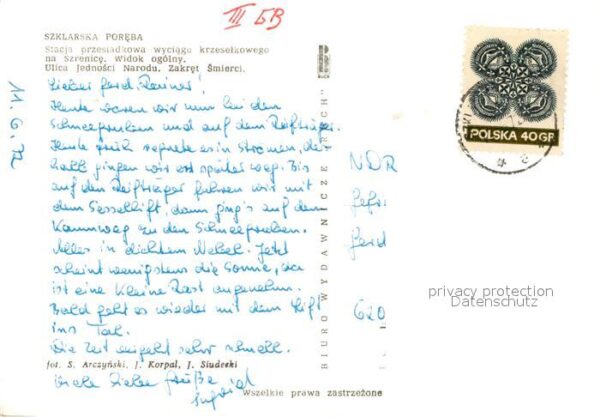 III БВ
SZKLARSKA PORĘBA
Stacja przesiadkowa wyciągu krzesełkowego
na Szrenicę. Widok ogólny.
Ulica Jedności Narodu. Zakręt Śmierci.
11.6.72
Lieber Gerd-Reiner!
Heute waren wir nun bei den
Schneegruben und auf dem Reifträger.
Heute früh regnete es in Strömen, des-
halb gingen wir erst später weg. Bis
auf den Reifträger fuhren wir mit
dem Sessellift, dann ging's auf dem
Kammweg zu den Schneegruben.
Alles in dichtem Nebel. Jetzt
scheint wenigstens die Sonne, da
ist eine kleine Rast angenehm.
Bald geht es wieder mit dem Lift
ins Tal.
Die Zeit vergeht sehr schnell.
Viele liebe Grüße
Ingrid
fot. S. Arczyński, J. Korpal, J. Siudecki
Wszelkie prawa zastrzeżone
BIURO WYDAWNICZE „RUCH”
POLSKA 40GR
NDR
Gerd
620
privacy protection
Datenschutz